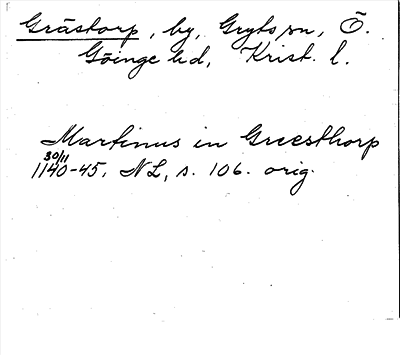 Gråstorp, by, Gryts sn, Ö.
Göinge hd, Krist. l.
Martinus in Greesthorp
30/11
1140-45, NL, s. 106. orig.